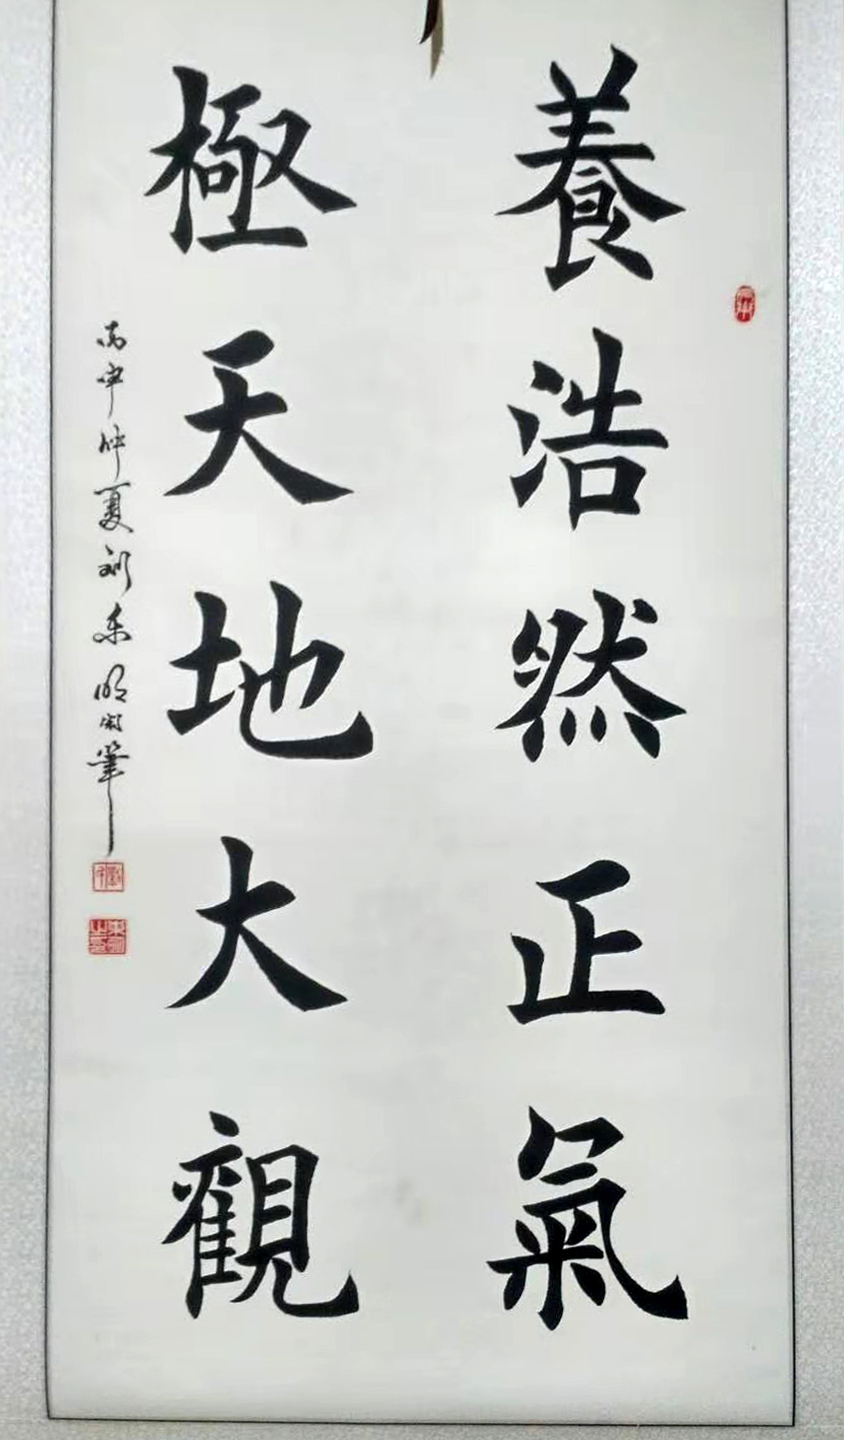 養浩然正氣
極天地大觀
丙申仲夏劉東明書筆